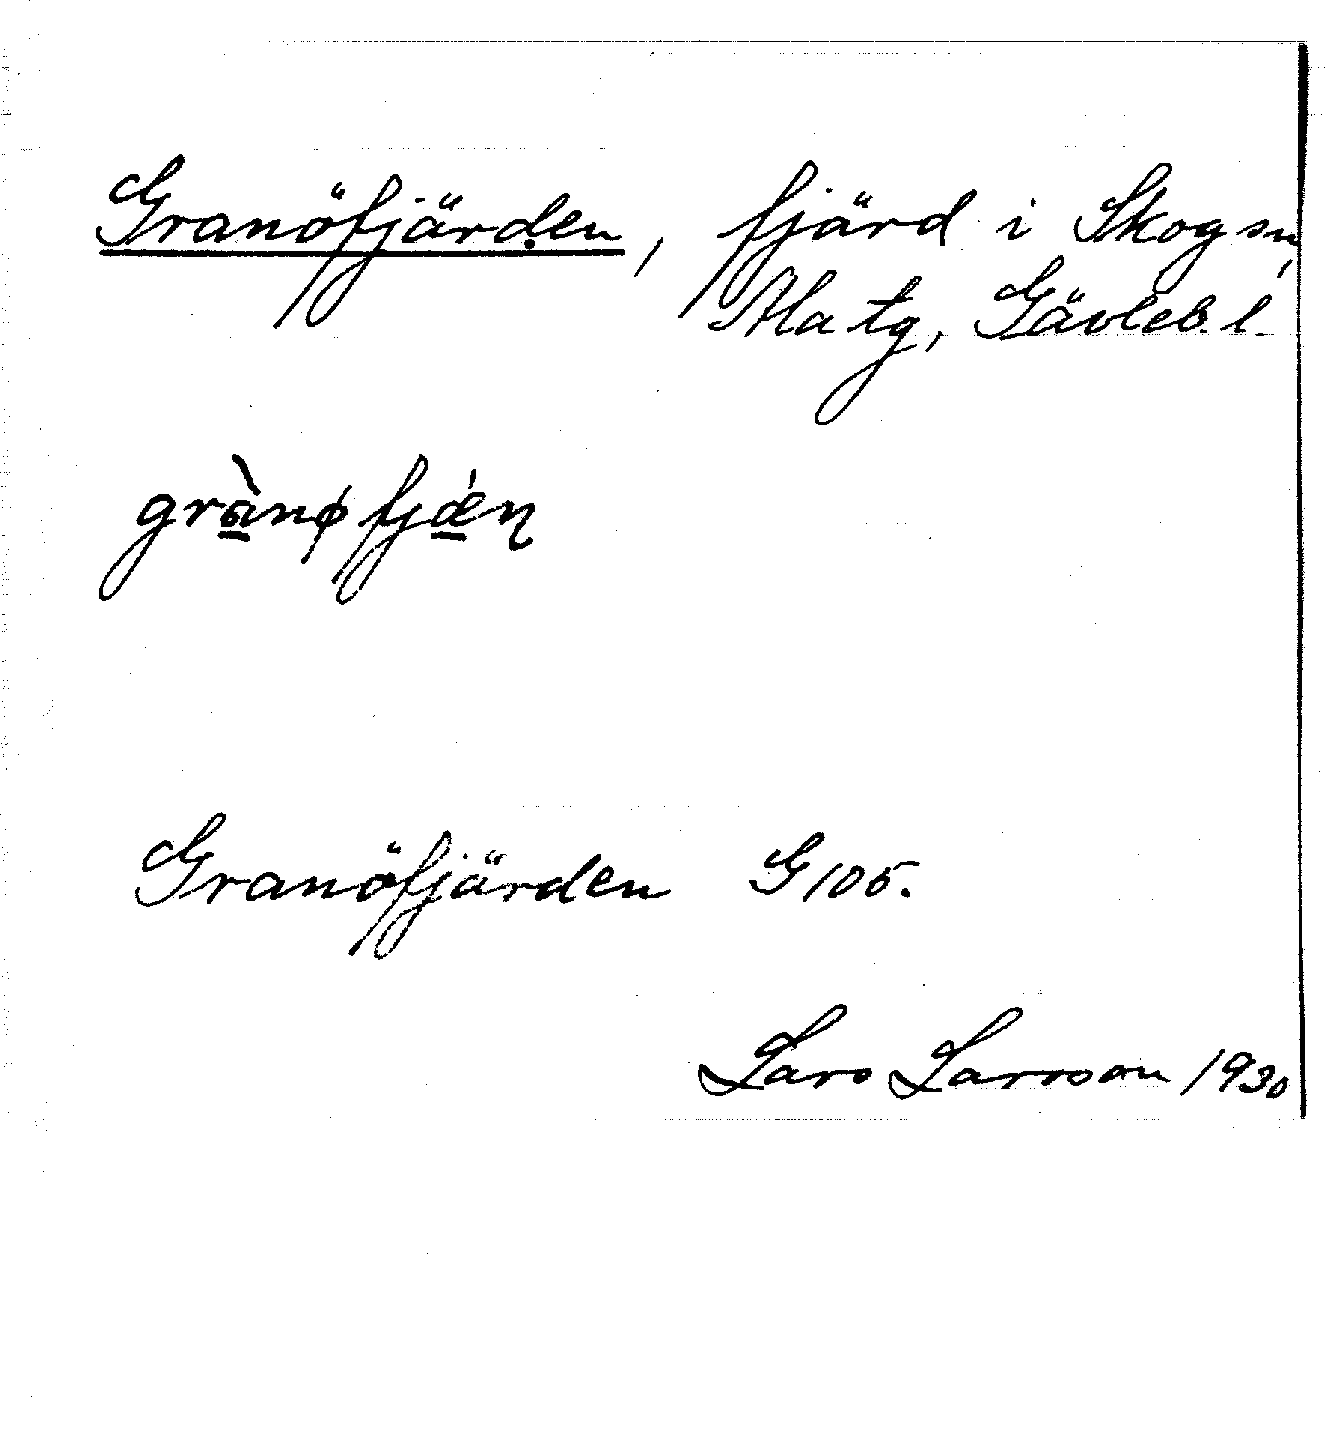 Granöfjärden, fjärd i Skogsn,
Ala tg, Gävleb. l.
grànø fjǽn
Granöfjärden G 105.
Lars Larsson 1930